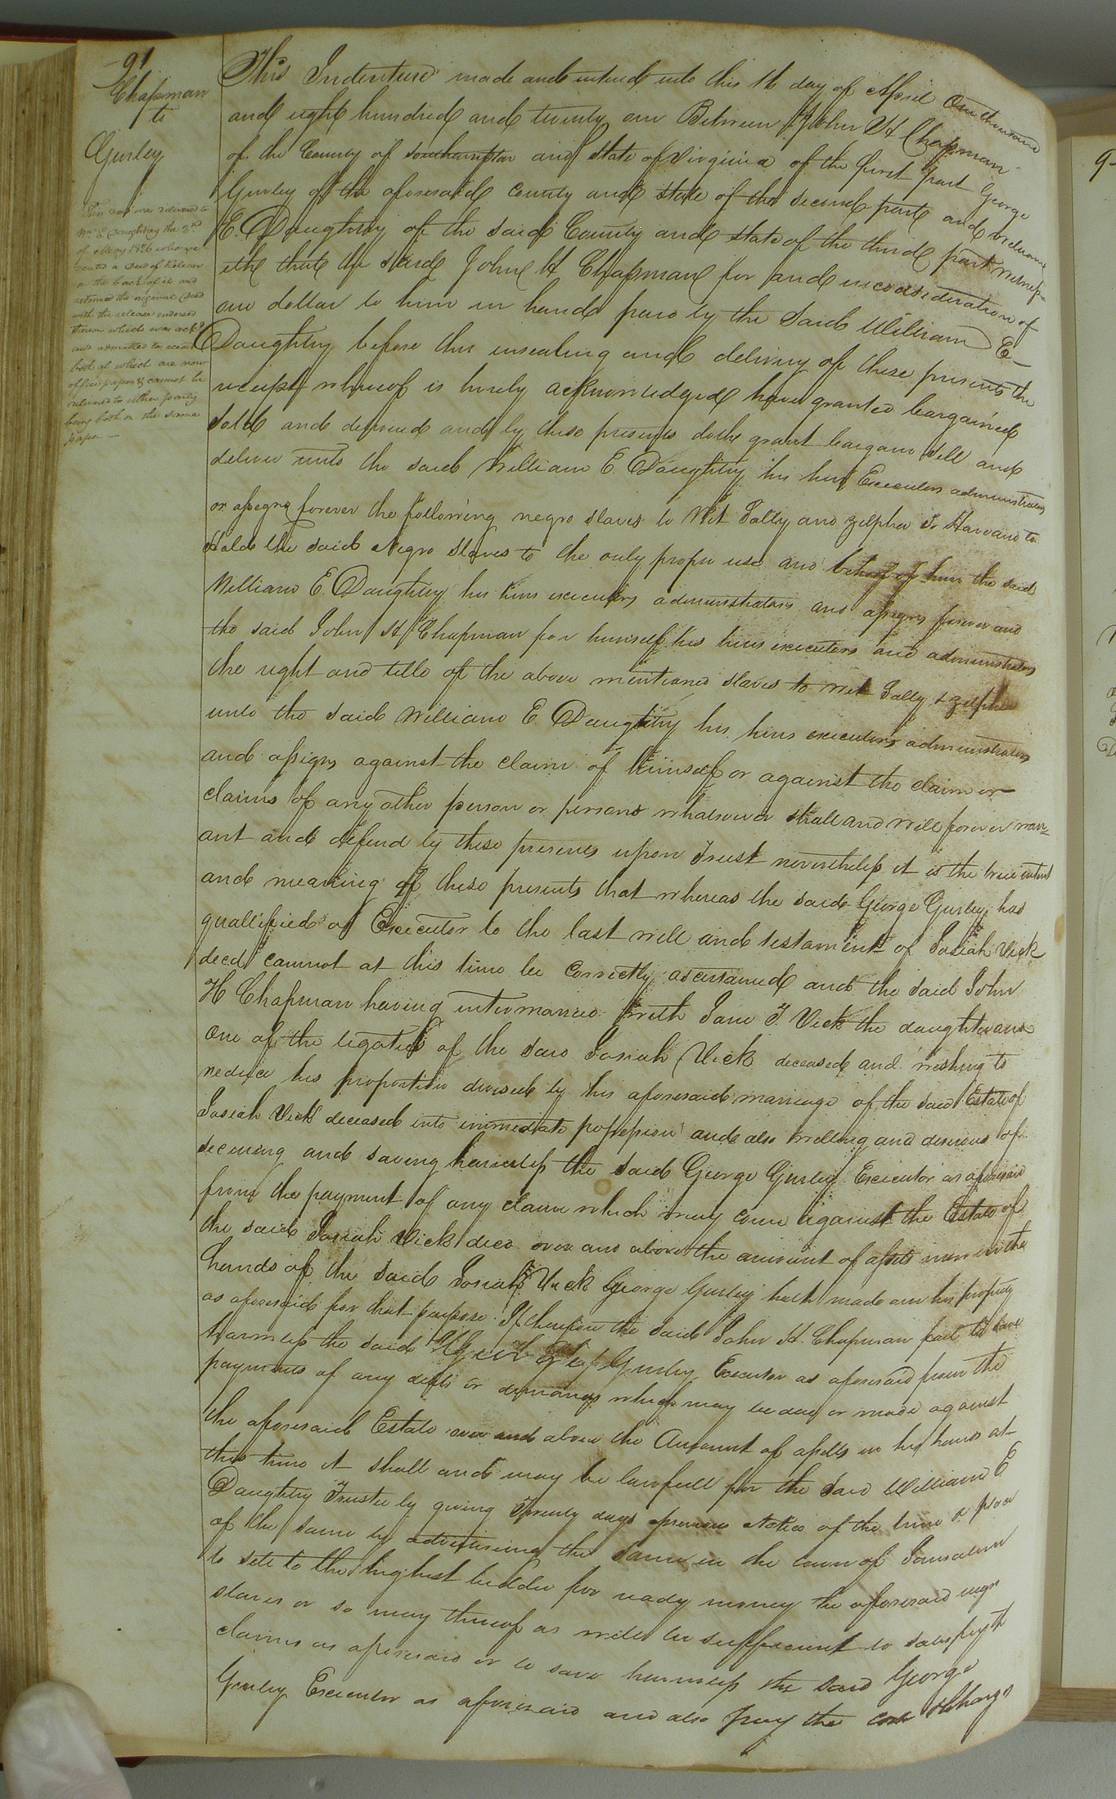 91
Chapman
to
Gurley
This Indenture made and entered into this 16 day of April One thousand
and eight hundred and twenty one Between John H Chapman
of the County of Southampton and State of Virginia of the first part George
Gurley of the aforesaid County and state of the second part and William
E. Daughtry of the said County and State of the third part witness-
eth that the said John H Chapman for and in consideration of
one dollar to him in hand paid by the said William E-
Daughtry before the ensealing and delivery of these presents the
receipt whereof is hereby acknowledged have granted bargained
sold and delivered and by these presents doth grant bargain sell and
deliver unto the said William E Daughtry his heirs Executors administrators
or assigns forever the following negro slaves to Wit Sally and Zilpha To Have and to
Hold the said Negro Slaves to the only proper use and behoof of him the said
William E Daughtry his heirs executors administrators and assigns forever and
the said John H Chapman for himself his heirs executors and administrators
the right and title of the above mentioned slaves to wit Sally & Zilpha
unto the said William E Daughtry his heirs executors administrators
and assigns against the claim of himself or against the claim or
claims of any other person or persons whatsoever shall and will forever warr-
ant and defend by these presents upon Trust nevertheless it is the true intent
and meaning of these presents that whereas the said George Gurley has
quallified as Executor to the last will and testament of Josiah Vick
decd cannot at this time be correctly ascertained and the said John
H Chapman having intermarried with Jane T. Vick the daughter and
one of the legatees of the said Josiah Vick deceased and wishing to
reduce his proportion devised by his aforesaid marriage of the said Estate of
Josiah Vick deceased into immediate possession and also willing and desirous of
securing and saving harmless the said George Gurley Executor as aforesaid
from the payment of any claim which may come against the Estate of
the said Josiah Vick decd over and above the amount of assets now in the
hands of the said Josiah Vick George Gurley hath made over his property
as aforesaid for that purpose If therefore the said John H. Chapman fail to save
harmless the said George Gurley Executor as aforesaid from the
payments of any debts or demands which may be due or made against
the aforesaid Estate over and above the Amount of assetts in his hands at
this time it shall and may be lawfull for the said William E
Daughtry Trustee by giving Twenty days previous Notice of the time & place
of the same by advertising the same in the town of Jerusalem
to sell to the highest bidder for ready money the aforesaid negro
slaves or so many thereof as will be sufficient to satisfy the
claims as aforesaid or to save harmless the said George
Gurley Executor as aforesaid and also pay the cost & charges